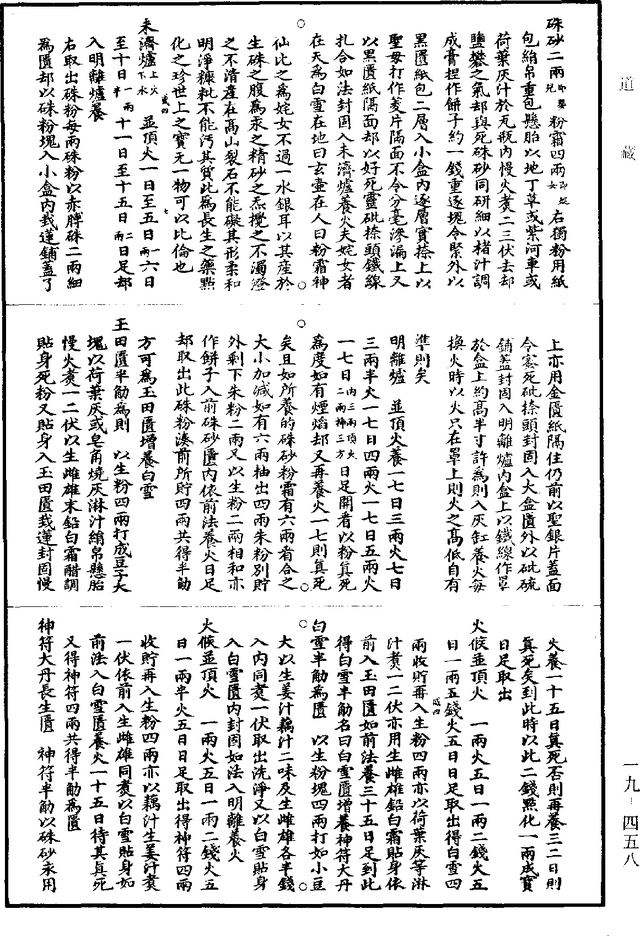 道藏
硃砂二兩即嬰兒粉霜四兩即姹女右獨粉用紙
包絹帛重包懸胎以地丁草或紫河車或
荷葉灰汁於瓦瓶内慢火煮二三伏去却
鹽礬之氣却與死硃砂同研細以楮汁調
成膏捏作餅子約一錢重逐塊令緊外以
黑匱紙包二層入小盒内逐層實捺上以
聖母打作菱片隔面不令分毫滲漏上又
以黑匱紙隔面却以好死靈砒捺頭鐵線
扎合如法封固入未濟爐養火夫姹女者
在天為白雪在地曰玄壷在人曰粉霜神
仙比之為姹女不過一水銀耳以其産於
生硃之腹為汞之精砂之炁攪之不濁澄
之不清産在髙山裂石不能礙其形柔和
明淨糠粃不能污其質此為長生之藥點
化之珍世上之寳无一物可以比倫也
未濟爐上火下水 並頂火一日至五日一兩六日
至十日一兩半十一日至十五日二兩日足却
入明離爐養
右取出硃粉每兩硃粉以赤髀硃二兩細
為匱却以硃粉塊入小盒内栽蓮鋪蓋了
上亦用金匱紙隔住仍前以聖銀片蓋面
令宻死砒捺頭封固入大盒匱外以砒硫
鋪蓋封固入明離爐内盒上以鐵線作罩
於盒上約髙半寸許為則入灰缸養火每
換火時以火只在罩上則火之髙低自有
準則矣
明離爐 並頂火養一七日三兩火七日
三兩半火一七日四兩火一七日五兩火
一七日内三兩頂火二兩㮇三方日足開看以粉真死
為度如有煙焰却又再養火一七則真死
矣且如所養的硃砂粉霜有六兩者合之
大小加減如有六兩抽出四兩朱粉别貯
外剰下朱粉二兩又以生粉二兩相和亦
作餅子入前硃砂匱内依前法養火日足
却取出此硃粉湊前所貯四兩共得半觔
方可為玉田匱增養白雪
玉田匱半觔為則 以生粉四兩打成豆子大
塊以荷葉灰或皂角燒灰淋汁絹帛懸胎
慢火煮一二伏以生雌雄末鉛白霜醋調
貼身死粉又貼身入玉田匱栽蓮封固慢
火養一十五日真死否則再養三二日則
真死矣到此時以此二錢點化一兩成寳
日足取出
火候並頂火 一兩火五日一兩二錢火五
日一兩五錢火五日日足取出得白雪四
兩收貯再入生粉四兩亦以荷葉灰等淋
汁煮一二伏亦用生雌雄鉛白霜貼身依
前入玉田匱如前法養三十五日足到此
得白雪半觔名曰白雪匱增養神符大丹
白雪半觔為匱 以生粉塊四兩打如小豆
大以生姜汁藕汁二味及生雌雄各半錢
入内同煮一伏取出洗淨又以白雪貼身
入白雪匱内封固如法入明離養火
火候並頂火 一兩火五日一兩二錢火五
日一兩半火五日日足取出得神符四兩
收貯再入生粉四兩亦以藕汁生姜汁煮
一伏依前入生雌雄同煮以白雪貼身如
前法入白雪匱養火一十五日待其真死
又得神符四兩共得半觔為匱
神符大丹長生匱 神符半觔以硃砂汞用
一九-四五八